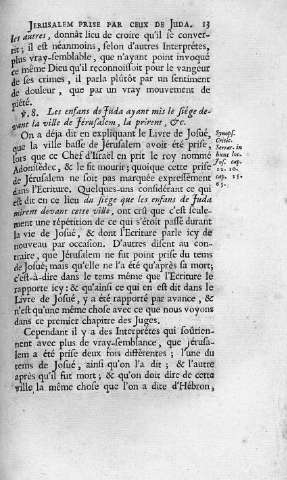 JERUSALEM PRISE PAR CEUX DE JUDA. 13
les autres, donnât lieu de croire qu'il se conver-
tit; il est néanmoins, selon d'autres Interprétes,
plus vray-semblable, que n'ayant point invoqué
ce même Dieu qu'il reconnoissoit pour le vangeur
de ses crimes, il parla plûtôt par un sentiment
de douleur, que par un vray mouvement de
piété.
ỳ. 8. Les enfans de Juda ayant mis le siége de-
vant la ville de Jérusalem, la prirent, &c.
On a déja dit en expliquant le Livre de Josué,
que la ville basse de Jérusalem avoit été prise,
lors que ce Chef d'Israel en prit le roy nommé
Adonisédec, & le fit mourir; quoique cette prise
de Jérusalem ne soit pas marquée expressément
dans l'Ecriture. Quelques-uns considérant ce qui
est dit en ce lieu du siége que les enfans de Juda
mirent devant cette ville, ont crû que c'est seule-
ment une répétition de ce qui s'étoit passé durant
la vie de Josué, & dont l'Ecriture parle icy de
nouveau par occasion. D'autres disent au con-
traire, que Jérusalem ne fut point prise du tems
de Josué; mais qu'elle ne l'a été qu'après sa mort;
c'est-à-dire dans le tems même que l'Ecriture le
rapporte icy: & qu'ainsi ce qui en est dit dans le
Livre de Josué, y a été rapporté par avance, &
n'est qu'une même chose avec ce que nous voyons
dans ce premier chapitre des Juges.
Cependant il y a des Interprétes qui soûtien-
nent avec plus de vray-semblance, que Jérusa-
lem a été prise deux fois différentes; l'une du
tems de Josué, ainsi qu'on l'a dit; & l'autre
après qu'il fut mort; & qu'on doit dire de cette
ville la même chose que l'on a dite d'Hébron,
Synops.
Critic.
Serrar. in
hunc loc.
Jos. cap.
12. 10.
cap. 15.
63.